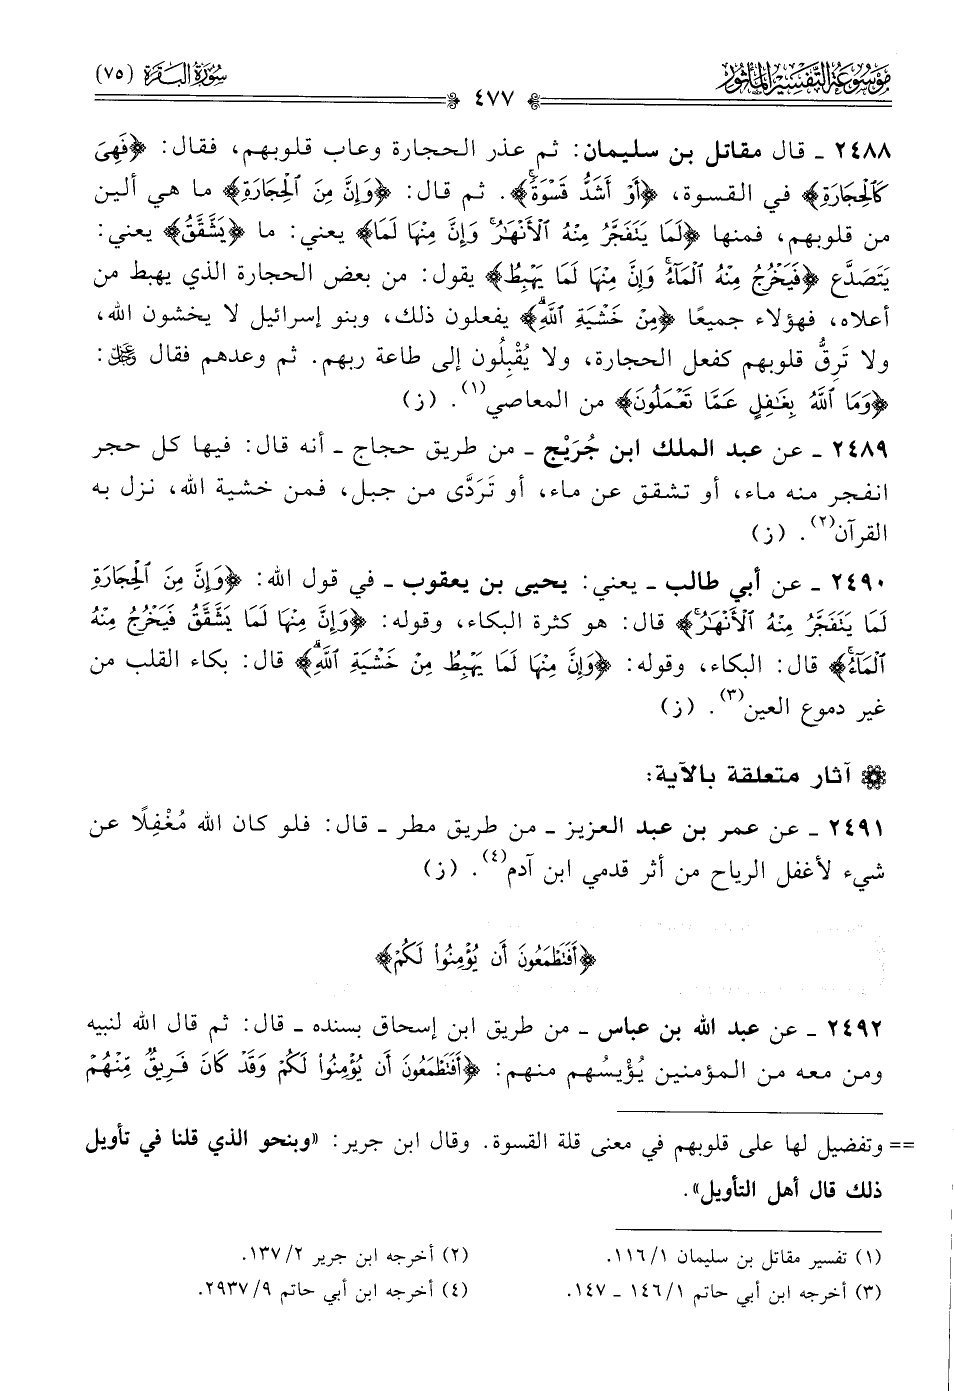 موسوعة التفسير المأثور
سورة البقرة (٧٥)
٤٧٧
٢٤٨٨ ـ قال مقاتل بن سليمان: ثم عذر الحجارة وعاب قلوبهم، فقال: ﴿فَهِىَ
كَٱلْحِجَارَةِ﴾ في القسوة، ﴿أَوْ أَشَدُّ قَسْوَةً﴾. ثم قال: ﴿وَإِنَّ مِنَ ٱلْحِجَارَةِ﴾ ما هي ألين
من قلوبهم، فمنها ﴿لَمَا يَتَفَجَّرُ مِنْهُ ٱلْأَنْهَٰرُ وَإِنَّ مِنْهَا لَمَا﴾ يعني: ما ﴿يَشَّقَّقُ﴾ يعني:
يَتَصَدَّع ﴿فَيَخْرُجُ مِنْهُ ٱلْمَآءُ وَإِنَّ مِنْهَا لَمَا يَهْبِطُ﴾ يقول: من بعض الحجارة الذي يهبط من
أعلاه، فهؤلاء جميعًا ﴿مِنْ خَشْيَةِ ٱللَّهِ﴾ يفعلون ذلك، وبنو إسرائيل لا يخشون الله،
ولا تَرِقُّ قلوبهم كفعل الحجارة، ولا يُقْبِلُون إلى طاعة ربهم. ثم وعدهم فقال ﷿:
﴿وَمَا ٱللَّهُ بِغَٰفِلٍ عَمَّا تَعْمَلُونَ﴾ من المعاصي(١). (ز)
٢٤٨٩ ـ عن عبد الملك ابن جُرَيْج ـ من طريق حجاج ـ أنه قال: فيها كل حجر
انفجر منه ماء، أو تشقق عن ماء، أو تَرَدَّى من جبل، فمن خشية الله، نزل به
القرآن(٢). (ز)
٢٤٩٠ ـ عن أبي طالب ـ يعني: يحيى بن يعقوب ـ في قول الله: ﴿وَإِنَّ مِنَ ٱلْحِجَارَةِ
لَمَا يَتَفَجَّرُ مِنْهُ ٱلْأَنْهَٰرُ﴾ قال: هو كثرة البكاء، وقوله: ﴿وَإِنَّ مِنْهَا لَمَا يَشَّقَّقُ فَيَخْرُجُ مِنْهُ
ٱلْمَآءُ﴾ قال: البكاء، وقوله: ﴿وَإِنَّ مِنْهَا لَمَا يَهْبِطُ مِنْ خَشْيَةِ ٱللَّهِ﴾ قال: بكاء القلب من
غير دموع العين(٣). (ز)
آثار متعلقة بالآية:
٢٤٩١ ـ عن عمر بن عبد العزيز ـ من طريق مطر ـ قال: فلو كان الله مُغْفِلًا عن
شيء لأغفل الرياح من أثر قدمي ابن آدم(٤). (ز)
﴿أَفَتَطْمَعُونَ أَن يُؤْمِنُوا۟ لَكُمْ﴾
٢٤٩٢ ـ عن عبد الله بن عباس ـ من طريق ابن إسحاق بسنده ـ قال: ثم قال الله لنبيه
ومن معه من المؤمنين يُؤْيِسُهم منهم: ﴿أَفَتَطْمَعُونَ أَن يُؤْمِنُوا۟ لَكُمْ وَقَدْ كَانَ فَرِيقٌ مِّنْهُمْ
== وتفضيل لها على قلوبهم في معنى قلة القسوة. وقال ابن جرير: «وبنحو الذي قلنا في تأويل
ذلك قال أهل التأويل».
(١) تفسير مقاتل بن سليمان ١/ ١١٦.
(٢) أخرجه ابن جرير ٢/ ١٣٧.
(٣) أخرجه ابن أبي حاتم ١/ ١٤٦ ـ ١٤٧.
(٤) أخرجه ابن أبي حاتم ٩/ ٢٩٣٧.